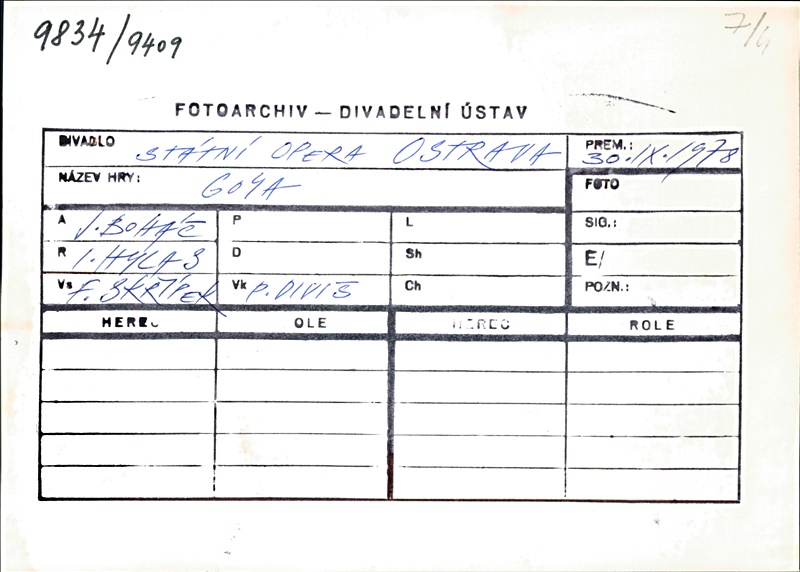 9834/9409
7/4
FOTOARCHIV — DIVADELNÍ ÚSTAV
DIVADLO STÁTNÍ OPERA OSTRAVA
PREM.: 30.IX.1978
NÁZEV HRY: GOYA
FOTO
A J. BOHÁČ P L SIG.:
R I. HYLAS D Sh E/
Vs F. SKŘÍPEK Vk P. DIVIŠ Ch POZN.:
HEREC OLE HEREC ROLE